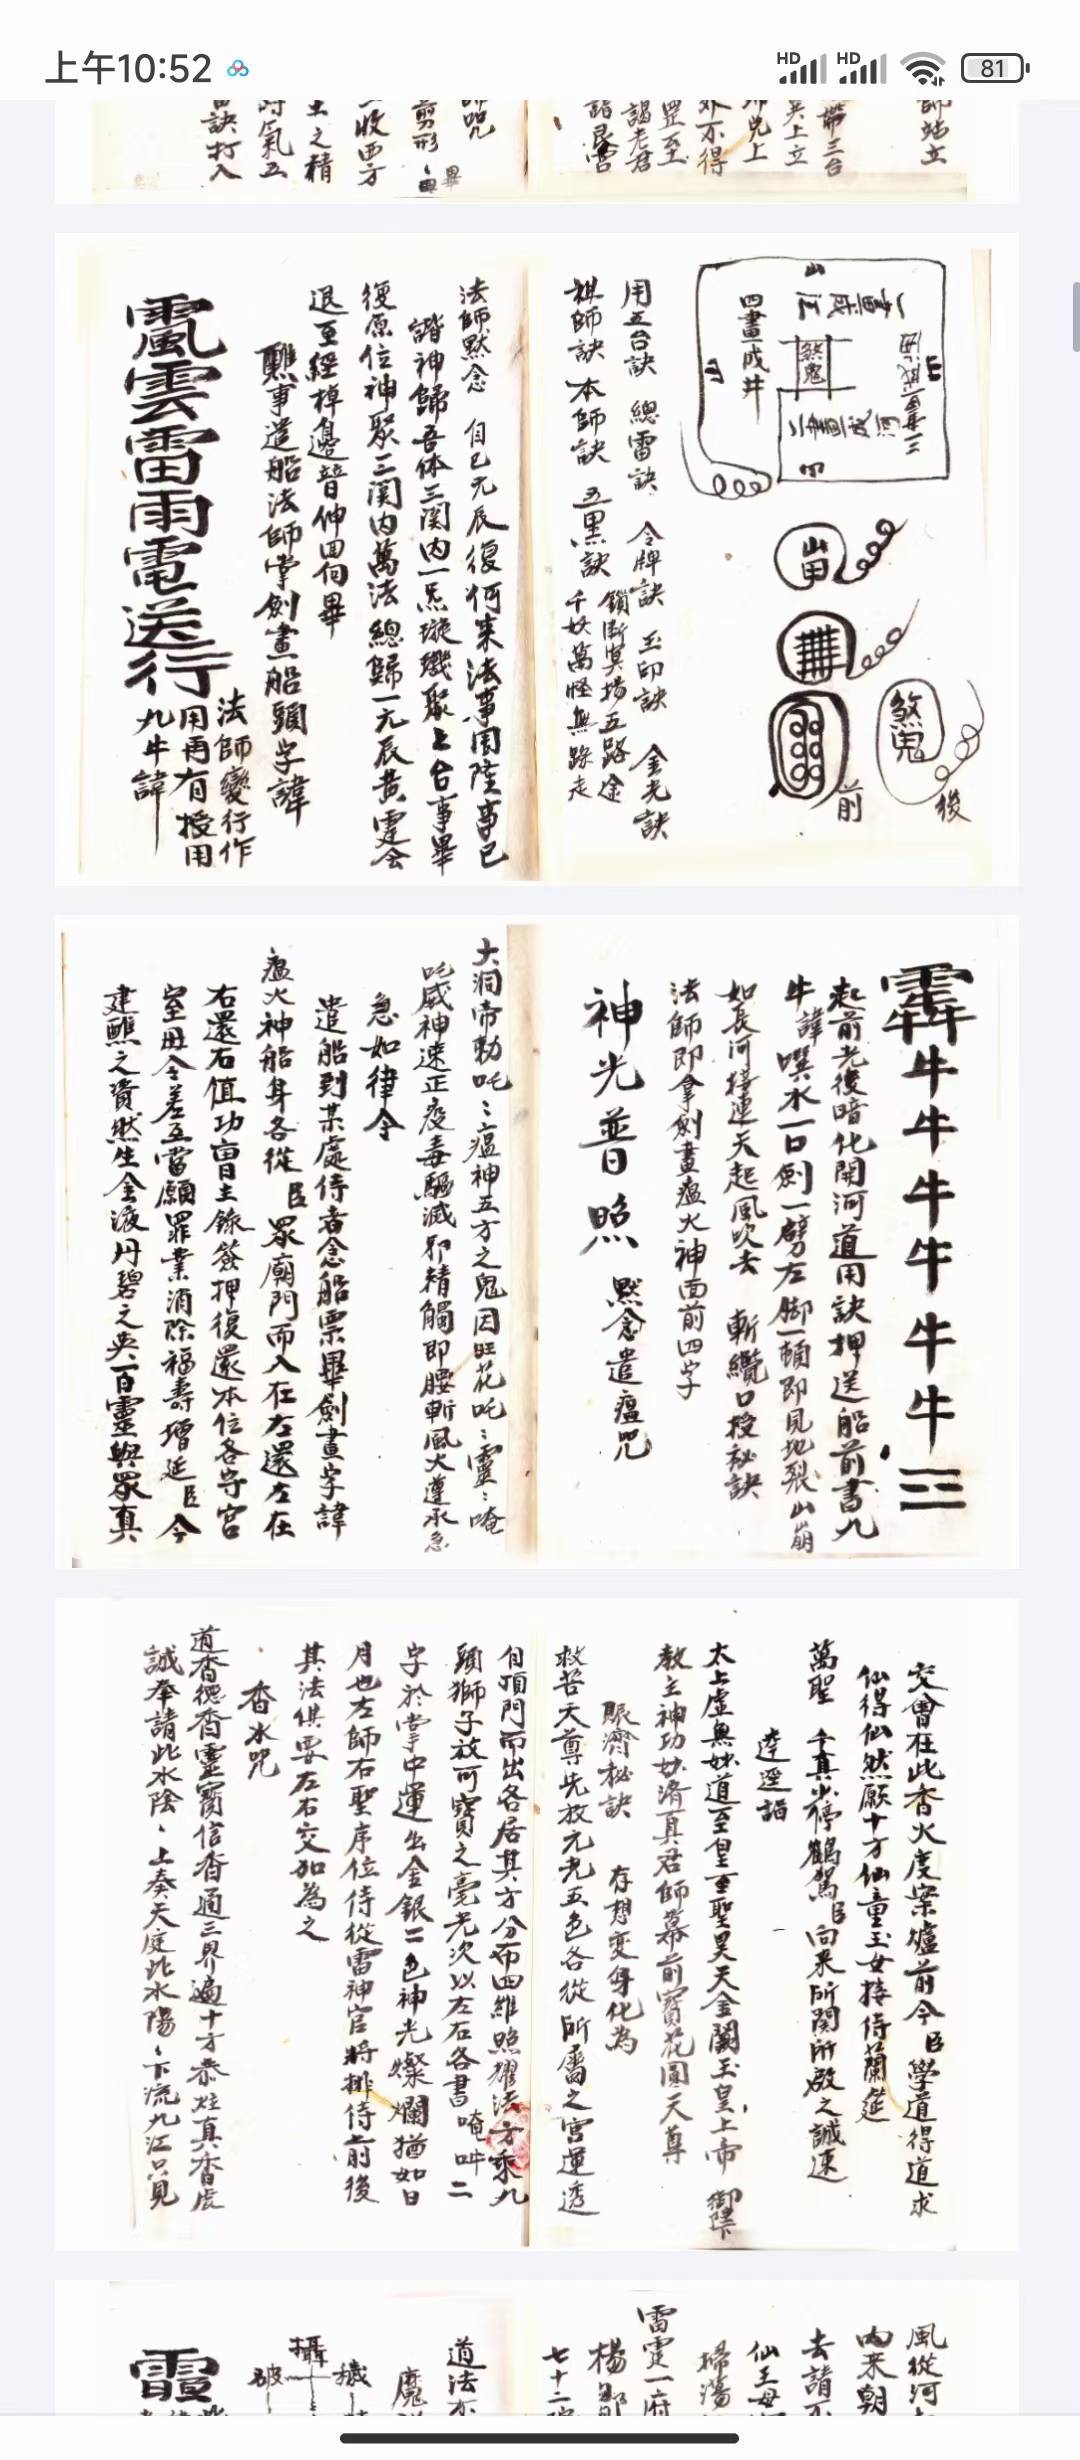 上午10:52
HD
HD
81
師站立
帶三台
四畫成井
煞鬼
山
前
煞鬼
後
用五台訣 總雷訣 令牌訣 玉印訣 金光訣
祖師訣 本師訣 五黑訣
鎖斷冥場五路途
千妖萬怪無路走
法師默念 自己元辰復何來法事周陸事已
諧神歸吾体三関内一炁璇璣聚上台事畢
復原位神聚三関内萬法總歸一元辰黄霆会
退至經棹邊普伸回向畢
醮事遣船法師掌劍畫船頭字諱
風雲雷雨電送行
法師變行作
用再有授用
九牛諱
牛牛牛牛牛牛
起前光後暗化開河道用訣押送船前書九
牛諱噀水一口劍一劈左脚一頓即見地裂山崩
如長河接連天起風吹去 斬纜口授秘訣
法師即拿劍畫瘟火神面前四字
神光普照 默念遣瘟咒
大洞帝勅吒〻瘟神五方之鬼因旺花吒〻靈〻唵
吒威神速正疫毒驅滅邪精觸即腰斬風火遵承急
急如律令
遣船到某處侍者念船票畢劍畫字諱
瘟火神船身各從 臣 眾廟門而入在左還左在
右還右值功曹主錄簽押復還本位各守宮
室毋令差互當願罪業消除福壽增延 臣 今
建醮之資然生金液丹碧之英百靈與眾真
交會在此香火度案爐前今 臣 學道得道求
仙得仙然願十方仙童玉女接侍蘭筵
萬聖 千真少停鶴駕 臣 向来所関所啟之誠速
達逕詣
太上虛無妙道至皇至聖昊天金闕玉皇上帝 御陛下
教主神功妙濟真君師幕前寶花圓天尊
賑濟秘訣 存想變身化為
救苦天尊先放元光五色各從所屬之宮運透
自頂門而出各居其方分布四維照耀法方乘九
頭獅子放可寶之毫光次以左右各書唵吽二
字於掌中運出金銀二色神光燦爛猶如日
月也左師右聖序位侍從雷神官將排侍前後
其法俱要左右交加為之
香水咒
道香德香靈寶信香通三界遍十方恭炷真香虔
誠奉請此水陰〻上奏天庭此水陽〻下流九江只見
風從河
内来朝
去請不
仙王母
掃蕩
雷霆一府
楊
七十二
道法
魔
攝
穢
破